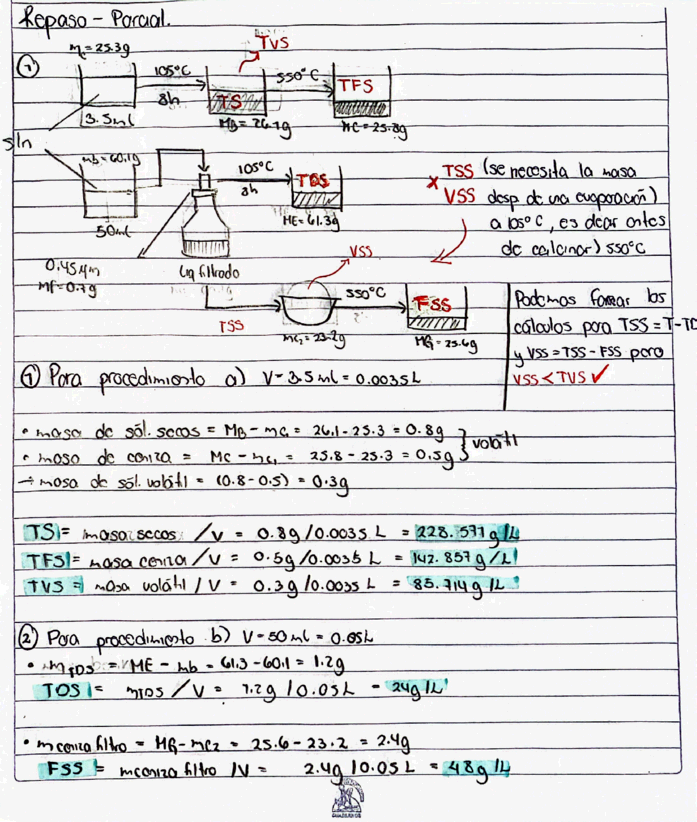 Repaso - Parcial.
m1 = 25.3g
TVS
①
105°C
8h
550°C
TS
TFS
3.5ml
MB = 26.1g
MC = 25.8g
sln
mb = 60.1g
105°C
8h
TDS
50ml
ME = 61.3g
TSS (se necesita la masa
x
VSS desp de una evaporación)
a 105°C, es decir antes
de calcinar) 550°C
0.45 µm
Mf = 0.7g
Liq filtrado
VSS
550°C
FSS
TSS
MG = 25.6g
Podemos formar los
cálculos para TSS = T-TD
y VSS = TSS - FSS pero
VSS < TVS ✓
① Para procedimiento a) V = 3.5 ml = 0.0035L
• masa de sól. secos = MB - mc1 = 26.1 - 25.3 = 0.8g
• masa de ceniza = MC - mc1 = 25.8 - 25.3 = 0.5g } volátil
→ masa de sól. volátil = (0.8 - 0.5) = 0.3g
TS = masa secos / V = 0.8g / 0.0035 L = 228.571 g/L
TFS = masa ceniza / V = 0.5g / 0.0035 L = 142.857 g/L
TVS = masa volátil / V = 0.3g / 0.0035 L = 85.714 g/L
② Para procedimiento b) V = 50 ml = 0.05L
• mTDS = ME - mb = 61.3 - 60.1 = 1.2g
TDS = mTDS / V = 1.2g / 0.05 L = 24g/L
• mceniza filtro = MG - mc2 = 25.6 - 23.2 = 2.4g
FSS = mceniza filtro / V = 2.4g / 0.05 L = 48 g/L